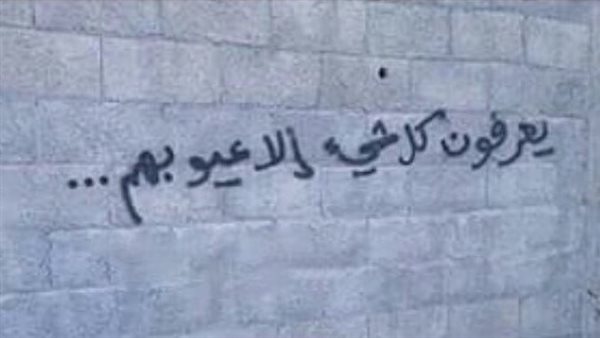 يعرفون كل شيء إلا عيوبهم ...